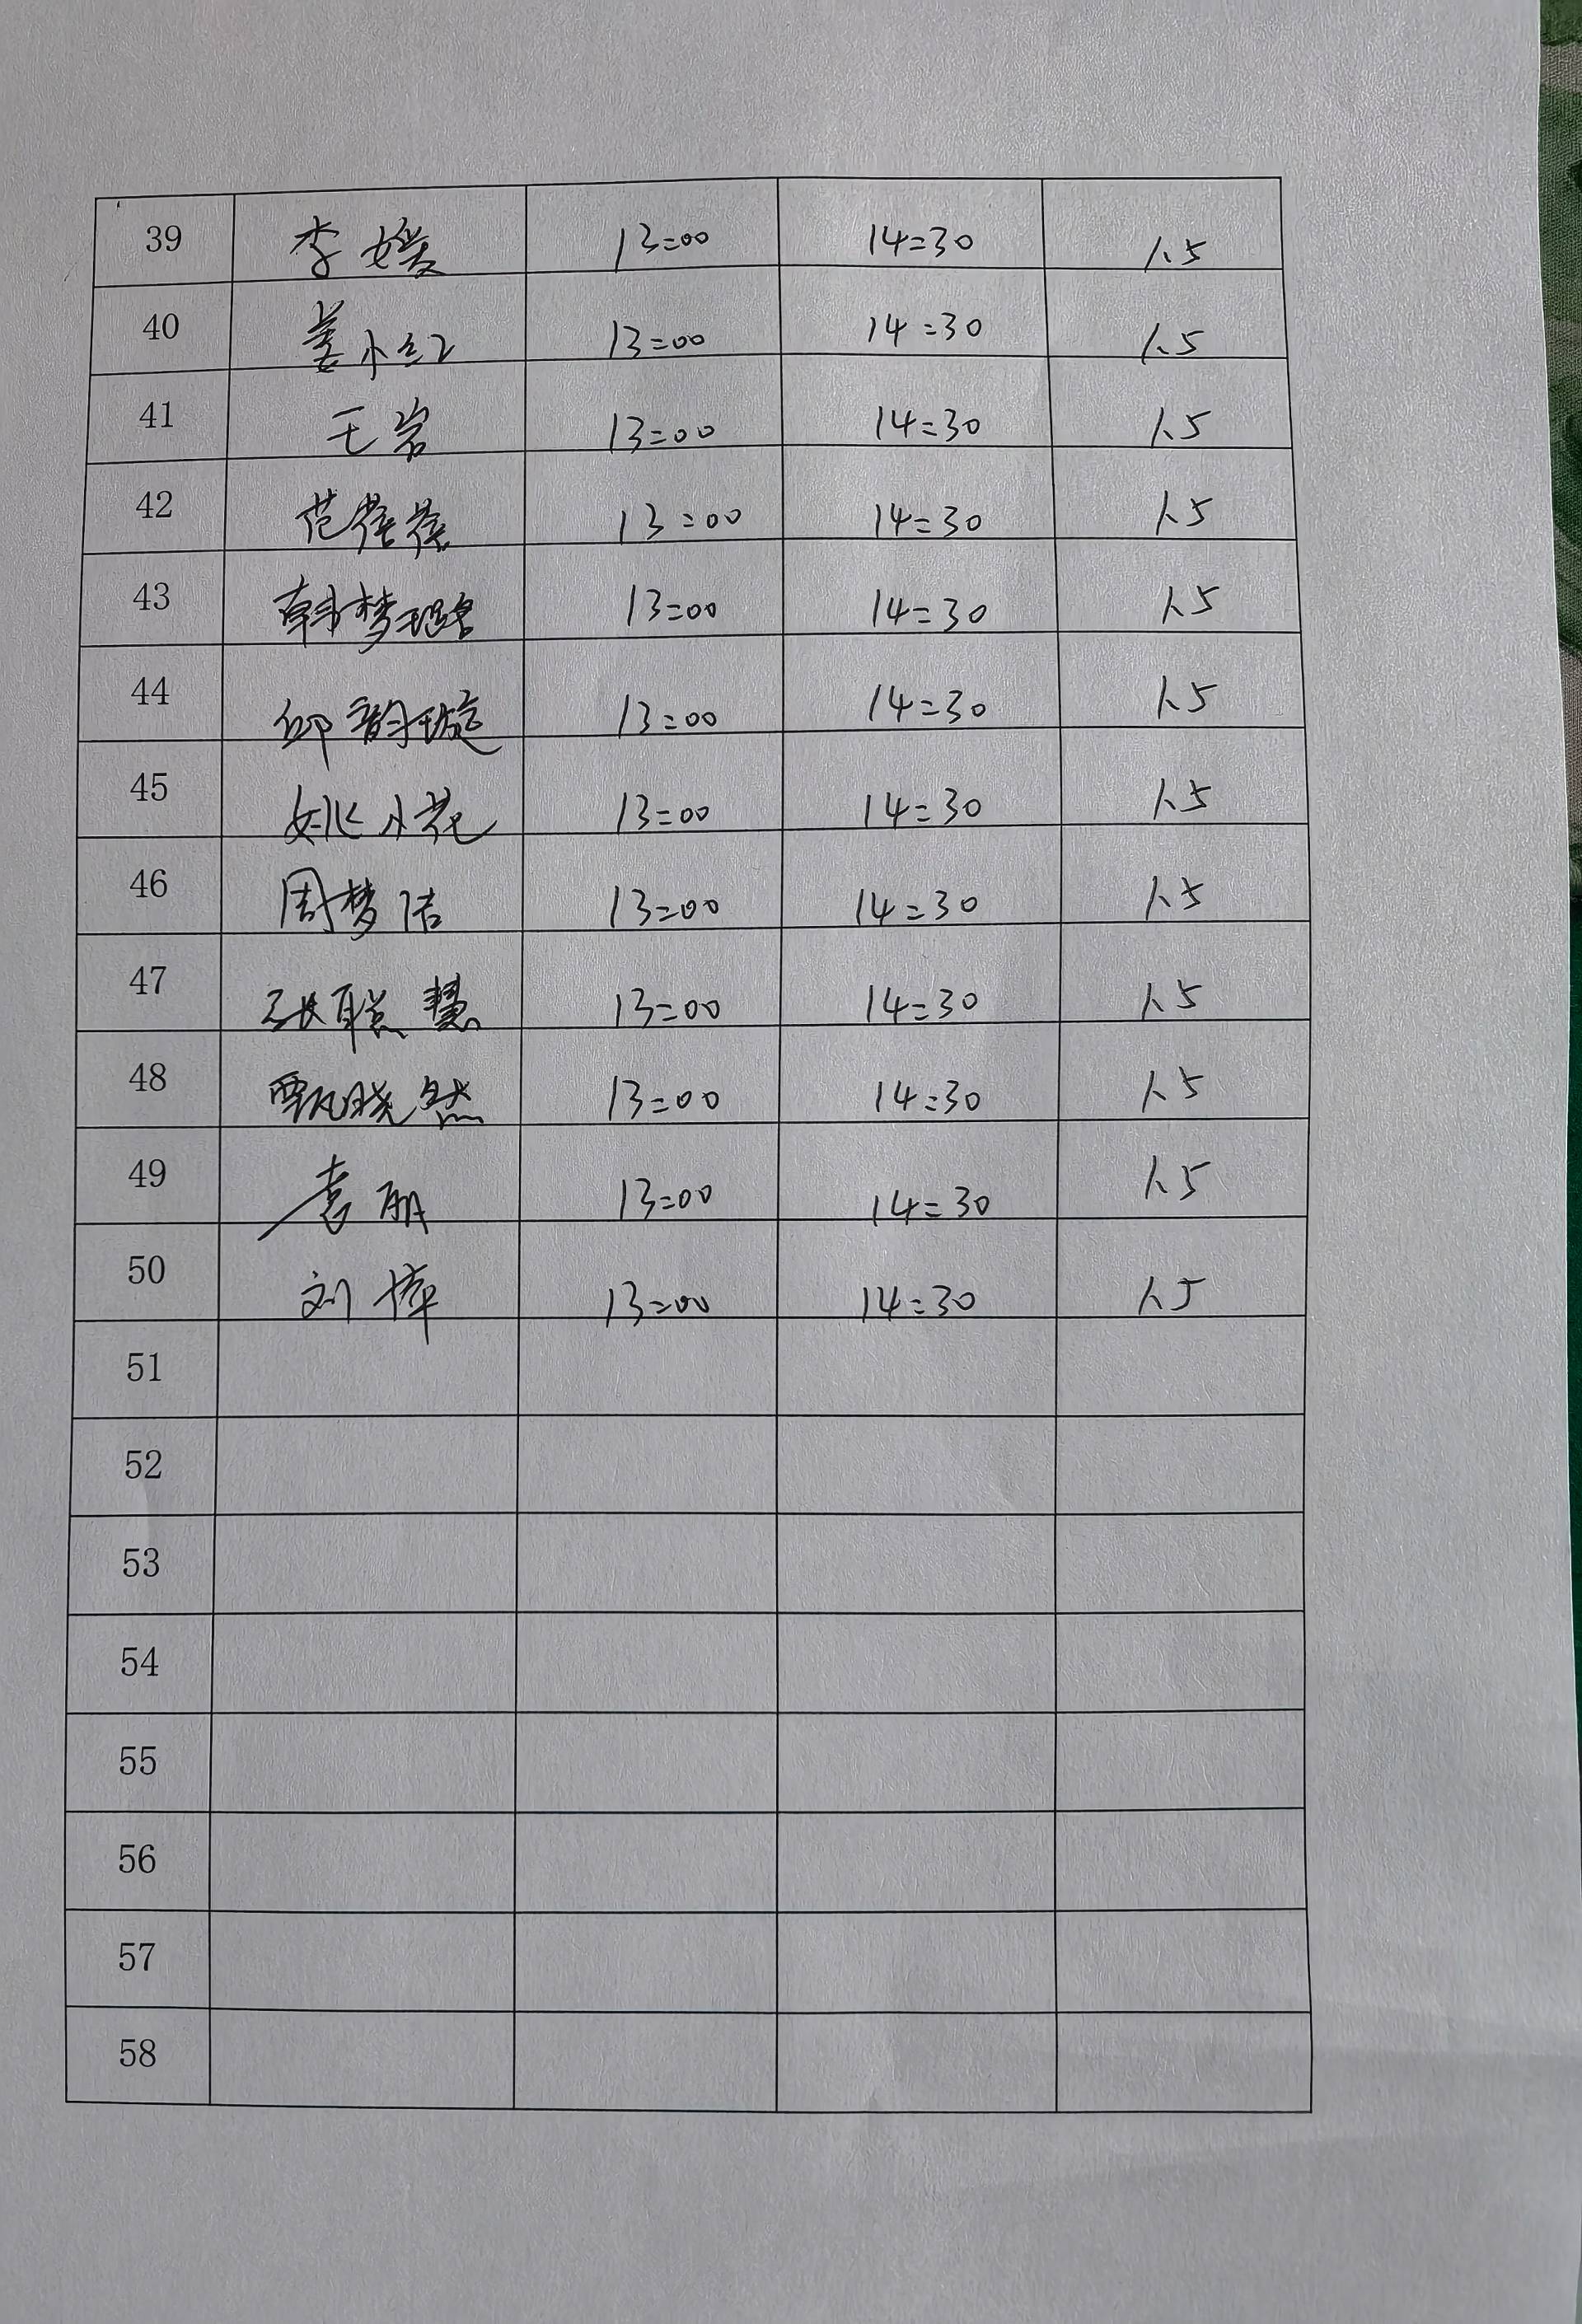 39 李媛 13:00 14:30 1.5
40 姜小红 13:00 14:30 1.5
41 王岩 13:00 14:30 1.5
42 范蓓蓓 13:00 14:30 1.5
43 韩梦璐 13:00 14:30 1.5
44 邱韵璇 13:00 14:30 1.5
45 姚小花 13:00 14:30 1.5
46 周梦洁 13:00 14:30 1.5
47 张聪慧 13:00 14:30 1.5
48 甄晓然 13:00 14:30 1.5
49 袁丽 13:00 14:30 1.5
50 刘 13:00 14:30 1.5
51
52
53
54
55
56
57
58